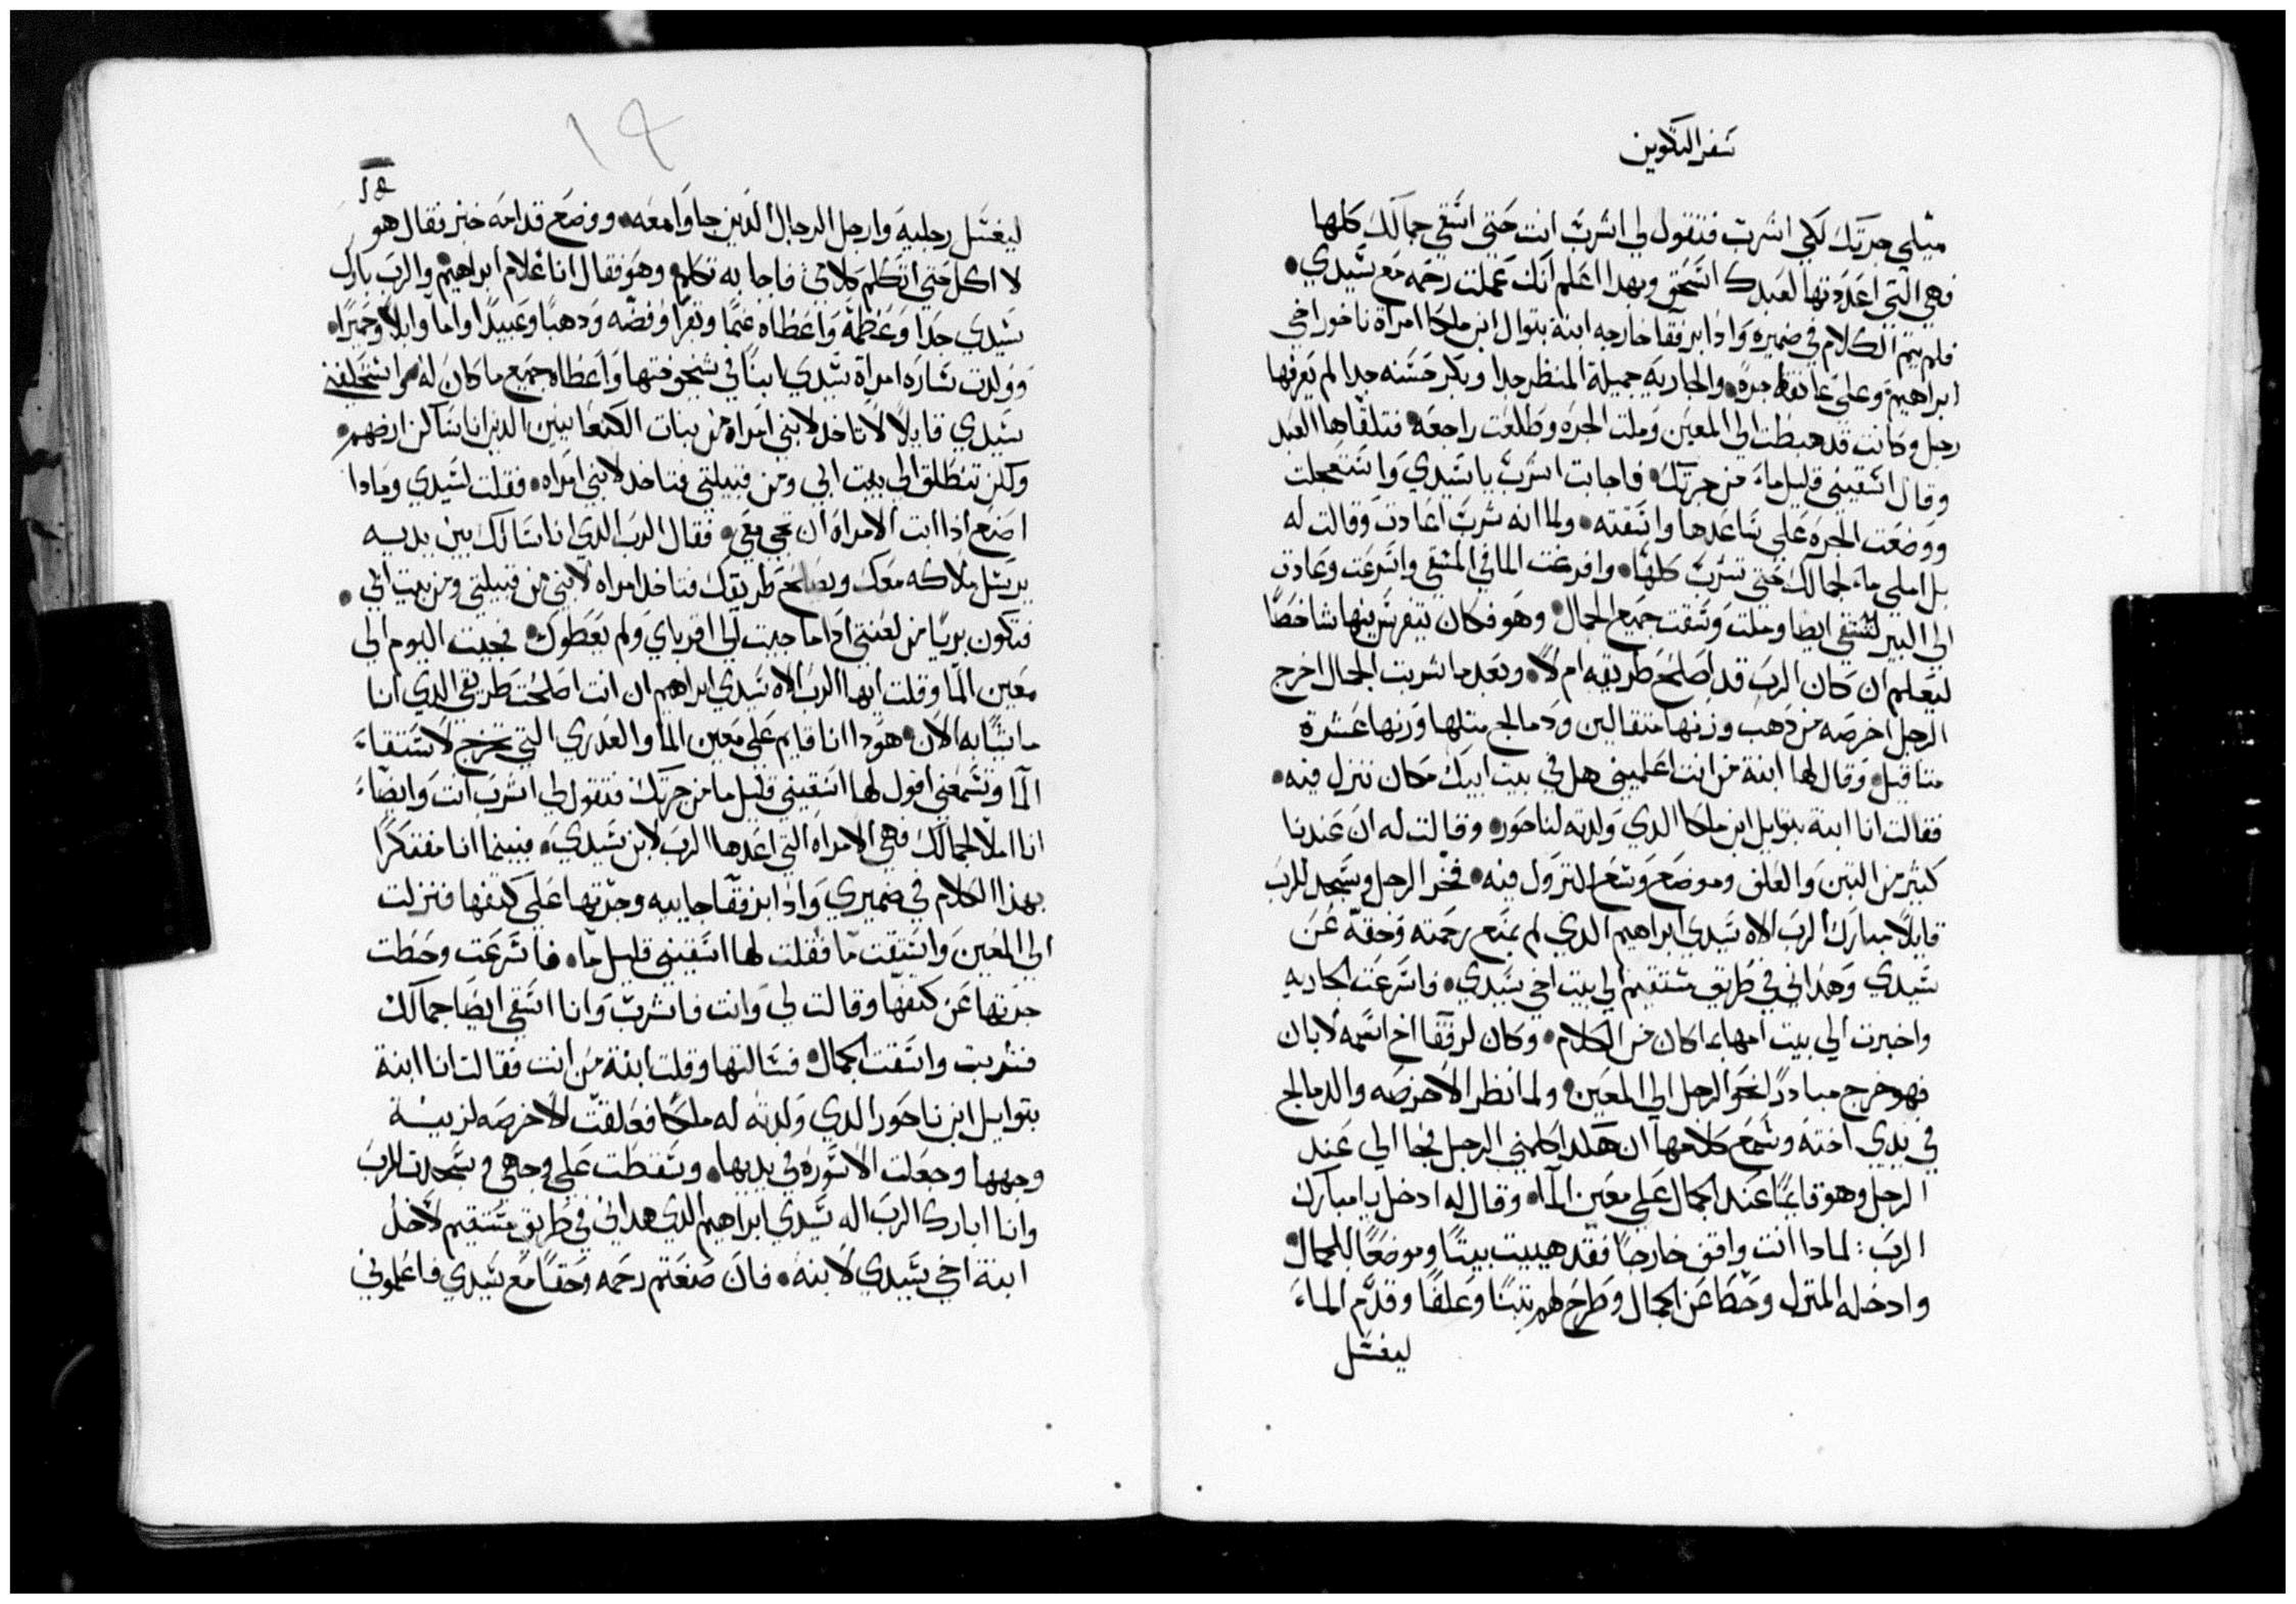 سفر التكوين
ميلي جرتك لكي اشرب فتقول لي اشرب انت حتي اسقي جمالك كلها
فهي التي اعددتها لعبدك اسحق وبهدا اعلم انك عملت رحمه مع سيدي
فلم يتم الكلام في ضميره وادا برفقا خارجه ابنة بتوال ابن ملكا امراة ناخور اخي
ابراهيم وعلي عاتقها جره والجاريه جميلة المنظر جدا وبكر حسنه جدا لم يعرفها
رجل وكانت قد هبطت الي المعين وملت الجره وطلعت راجعه فتلقاها العبد
وقال اسقيني قليل ماء من جرتك فاجابت اشرب يا سيدي واستعجلت
ووضعت الجره علي ساعدها واسقته ولما انه شرب اعادت وقالت له
بل املي ماء لجمالك حتي تشرب كلها وافرغت الما في المسقي واسرعت وعادت
الي البير لتستقي ايضا وملت وسقت جميع الجمال وهو فكان يتفرس فيها شاخصا
ليعلم ان كان الرب قد اصلح طريقه ام لا وبعد ما شربت الجمال اخرج
الرجل اخرصه من دهب وزنها متقالين ودمالج متلها وزنها عشرة
متاقيل وقال لها ابنة من انت اعلميني هل في بيت ابيك مكان ننزل فيه
فقالت انا ابنة بتوايل ابن ملكا الدي ولدته لناحور وقالت له ان عندنا
كثير من التبن والعلف وموضع وسع للنزول فيه فخر الرجل وسجد للرب
قايلا مبارك الرب الاه سيدي ابراهيم الدي لم يمنع رحمته وحقه عن
سيدي وهداني في طريق مستقيم الي بيت اخي سيدي فاسرعت الجاريه
واخبرت الي بيت امها بما كان من الكلام وكان لرفقا اخ اسمه لابان
فهو خرج مبادرا نحو الرجل الي المعين ولما نظر الاخرصه والدمالج
في يدي اخته وسمع كلامها ان هكدا كلمني الرجل فجا الي عند
الرجل وهو قايما عند الجمال علي معين الما وقال له ادخل يا مبارك
الرب لمادا انت واقف خارجا فقد هييت بيتا وموضعا للجمال
وادخله المنزل وحطا عن الجمال وطرح لهم تبنا وعلفا وقدم الماء
ليغسل
١٩
ليغسل رجليه وارجل الرجال الدين جاوا معه ووضع قدامه خبز فقال هو
لا اكل حتي اتكلم كلامي فاجابه تكلم وهو فقال انا غلام ابراهيم والرب بارك
سيدي جدا وعظمه واعطاه غنما وبقرا وفضه ودهبا وعبيدا واما وابلا وحميرا
وولدت ساره امراة سيدي ابنا في شيخوختها واعطاه جميع ما كان له واستحلفني
سيدي قايلا لا تاخد لابني امراه من بنات الكنعانيين الدين انا ساكن ارضهم
ولكن تنطلق الي بيت ابي ومن قبيلتي فتاخد لابني امراه فقلت لسيدي ومادا
اصنع ادا ابت الامراه ان تجي معي فقال الرب الدي انا سالك بين يديه
يرسل ملاكه معك ويصلح طريقك فتاخد امراه لابني من قبيلتي ومن بيت ابي
فتكون بريا من لعنتي ادا ما جيت الي اقرباي ولم يعطوك فجيت اليوم الي
معين الما وقلت ايها الرب الاه سيدي ابراهيم ان انت اصلحت طريقي الدي انا
ماشيا به الان هودا انا قايم علي معين الما والعدري التي تخرج لاستقاء
الما وتسمعني اقول لها اسقيني قليل ما من جرتك فتقول لي اشرب انت وايضاء
انا املا لجمالك فهي الامراه التي اعدها الرب لابن سيدي فبينما انا مفتكرا
بهذا الكلام في ضميري واذا برفقا جاييه وجرتها علي كتفها فنزلت
الي المعين واستقت ما فقلت لها اسقيني قليل ما فاسرعت وحطت
جرتها عن كتفها وقالت لي وانت فاشرب وانا اسقي ايضا جمالك
فشربت واسقت الجمال فسالتها وقلت ابنة من انت فقالت انا ابنة
بتوايل ابن ناحور الدي ولدته له ملكا فعلقت الاخرصه لزينة
وجهها وجعلت الاسوره في يديها وسقطت علي وجهي وسجدت للرب
وانا ابارك الرب اله سيدي ابراهيم الدي هداني في طريق مستقيم لاخد
ابنة اخي سيدي لابنه فان صنعتم رحمه وحقا مع سيدي فاعلموني